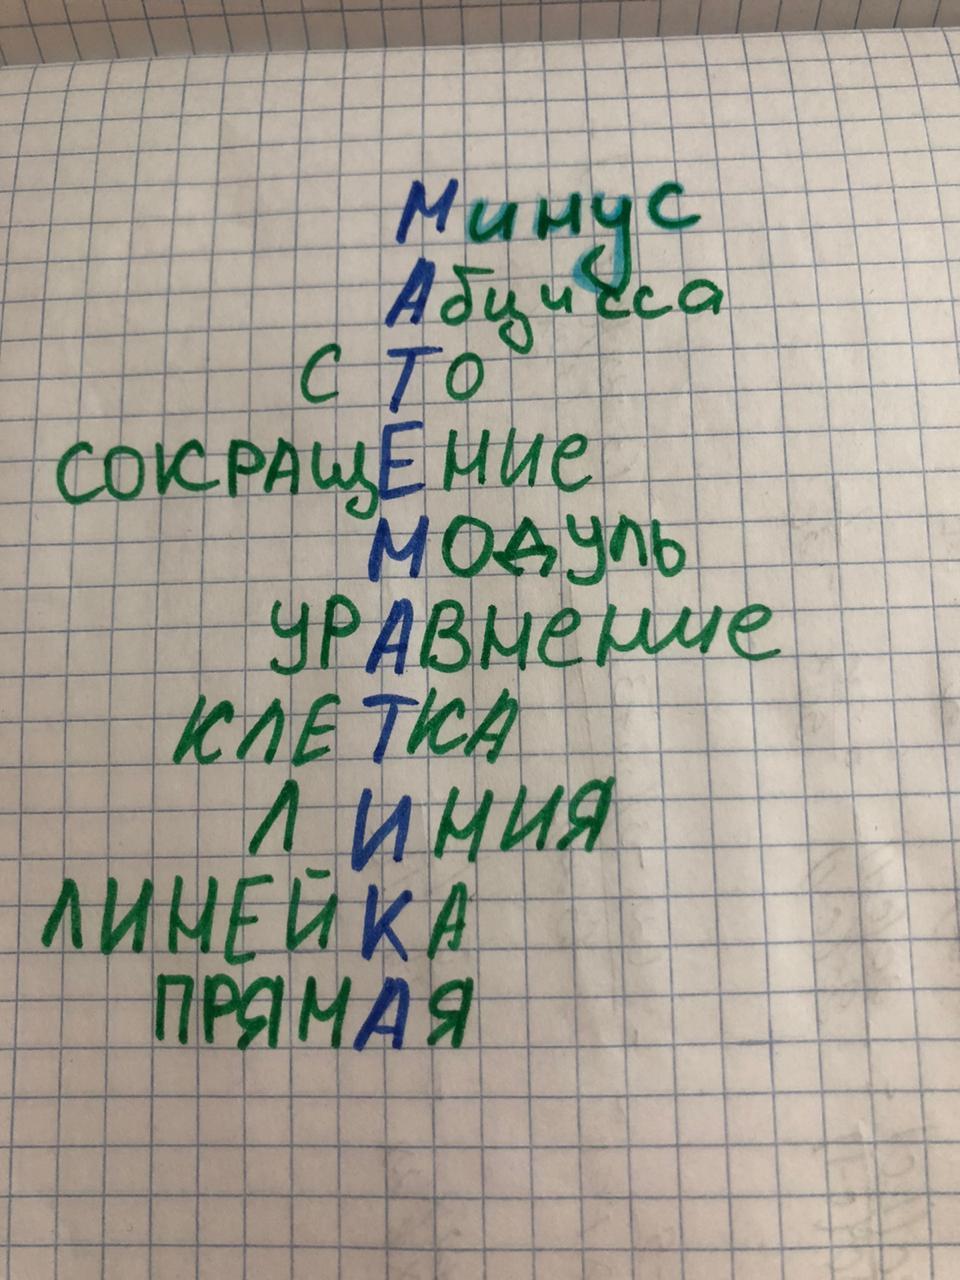 Минус
Абцисса
СТО
СОКРАЩЕНие
МОДУЛЬ
УРАВНение
КЛЕТКА
ЛИНИЯ
ЛИНЕЙКА
ПРЯМАЯ